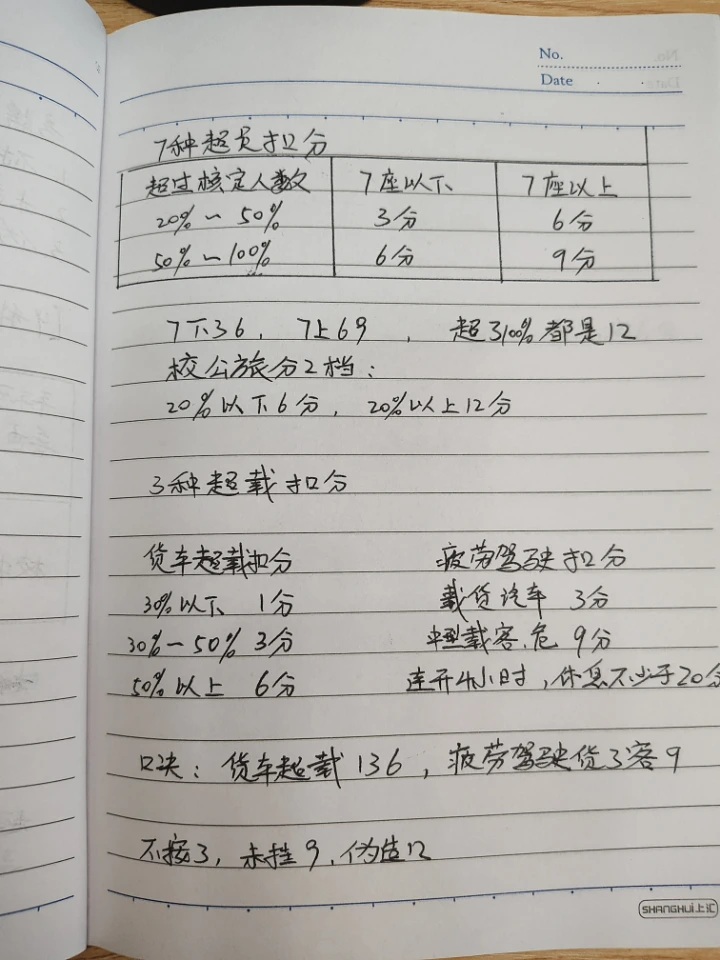 No.
Date
7种超员扣分
超过核定人数 7座以下 7座以上
20%~50% 3分 6分
50%~100% 6分 9分
7下36, 7上69, 超过100%都是12
校公旅分2档:
20%以下6分, 20%以上12分
3种超载扣分
货车超载扣分 疲劳驾驶扣分
30%以下 1分 载货汽车 3分
30%~50% 3分 中型载客.危 9分
50%以上 6分 连开4小时,休息不少于20分
口决: 货车超载136, 疲劳驾驶货3客9
不按3, 未挂9, 伪造12
SHANGHUI上汇